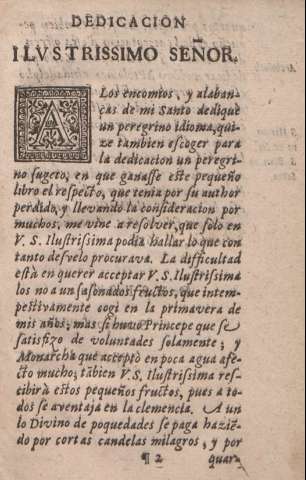 DEDICACION
ILVSTRISSIMO SEÑOR.
A Los encomios, y alaban-
ças de mi Santo dediquè
un peregrino idioma, qui-
ze tambien escoger para
la dedicacion un peregri-
no sugeto, en que ganasse este pequeño
libro el respecto, que tenia por su author
perdido, y llevando la consideracion por
muchos, me vine a resolver, que solo en
V. S. Ilustrissima podia hallar lo que con
tanto desvelo procurava. La difficultad
està en querer acceptar V. S. Ilustrissima
los no a un sasonados fructos, que intem-
pestivamente cogi en la primavera de
mis años; mas si huvo Principe que se
satisfizo de voluntades solamente; y
Monarcha que acceptò en poca agua afè-
cto mucho; tãbien V.S. Ilustrissima res-
cibirà estos pequeños fructos, pues a to-
dos se aventaja en la clemencia. A un
lo Divino de poquedades se paga haziẽ-
do por cortas candelas milagros, y por
¶ 2 quar-